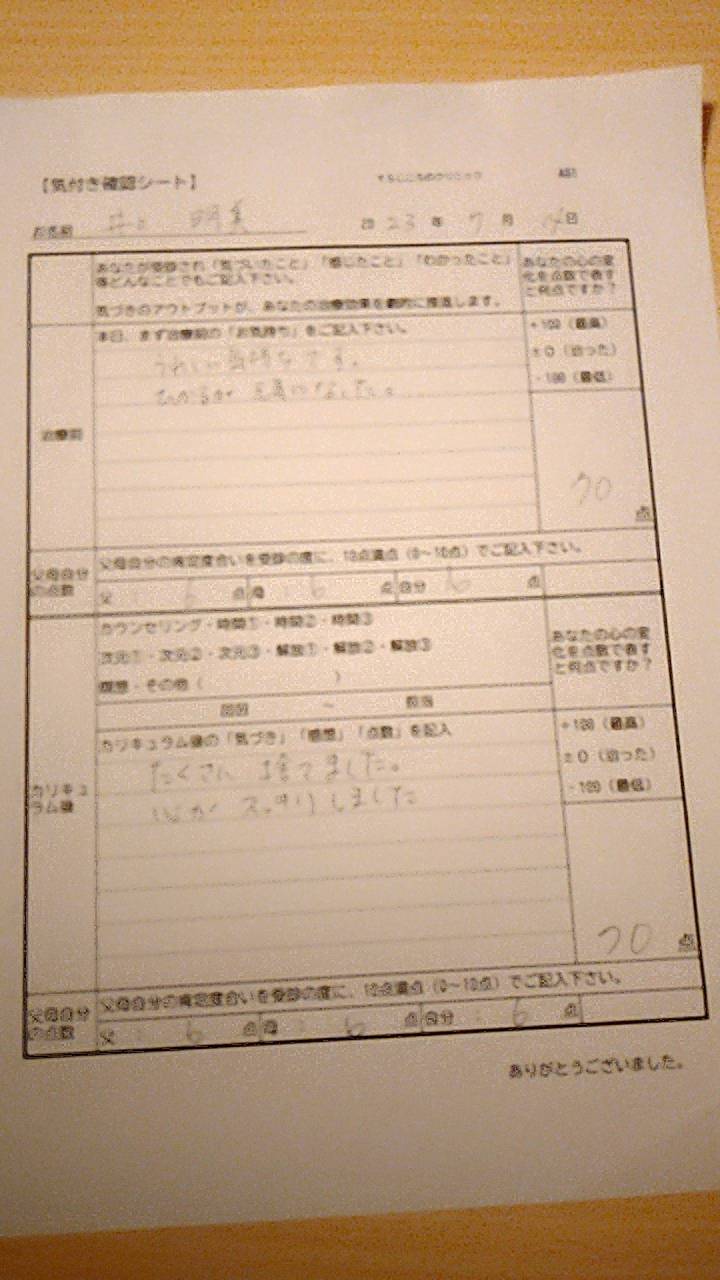 【気付き確認シート】
お名前 明美 2023年7月日
あなたが受診され「気づいたこと」「感じたこと」「わかったこと」
等どんなことでもご記入下さい。
気づきのアウトプットが、あなたの治療効果を劇的に推進します。
あなたの心の変
化を点数で表す
と何点ですか？
治療前
本日、まず治療前の「お気持ち」をご記入下さい。
うれしい気持ちです。
なりました。
+100（最高）
±0（迷った）
-100（最低）
70点
父母自分
の点数
父母自分の肯定度合いを受診の度に、10点満点（0～10点）でご記入下さい。
父：6点 母：6点 自分：6点
カリキュ
ラム後
カウンセリング・時間①・時間②・時間③
次元①・次元②・次元③・解放①・解放②・解放③
瞑想・その他（ ）
～
あなたの心の変
化を点数で表す
と何点ですか？
カリキュラム後の「気づき」「感想」「点数」を記入
たくさん捨てました。
心がスッキリしました
+100（最高）
±0（迷った）
-100（最低）
70点
父母自分
の点数
父母自分の肯定度合いを受診の度に、10点満点（0～10点）でご記入下さい。
父：6点 母：6点 自分：6点
ありがとうございました。